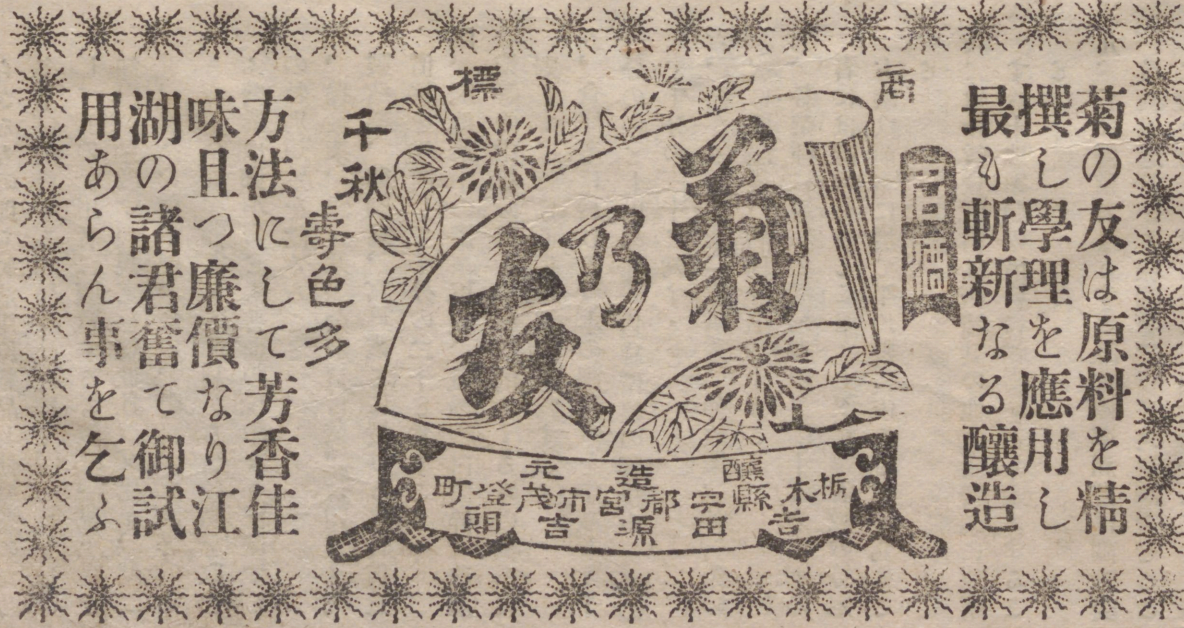 商標
名酒
菊の友は原料を精
撰し學理を應用し
最も斬新なる釀造
菊乃友
千秋
壽色多
釀造元
栃木縣宇都宮市茂登町
吉田源吉
方法にして芳香佳
味且つ廉價なり江
湖の諸君奮て御試
用あらん事を乞ふ